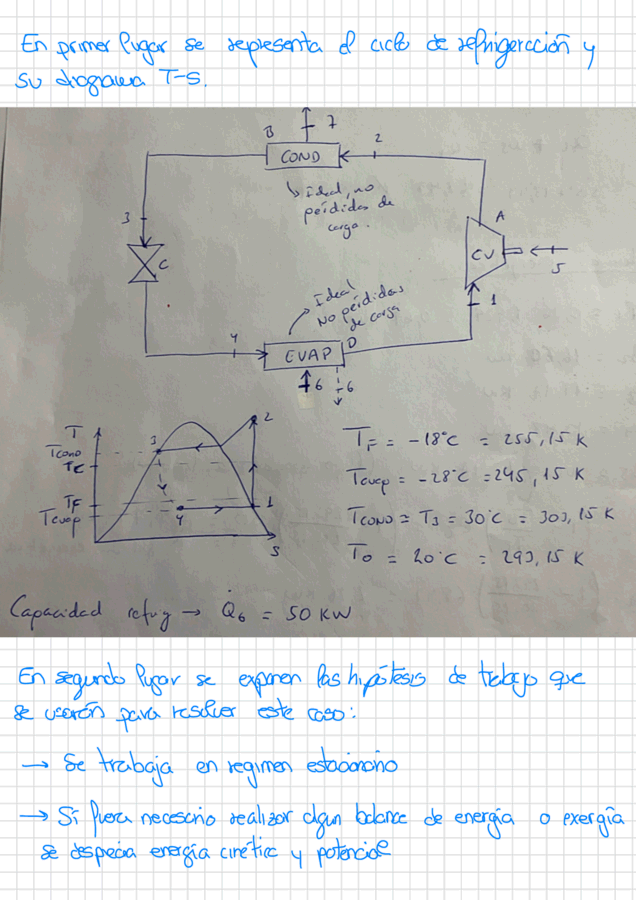 En primer lugar se representa el ciclo de refrigeración y
su diagrama T-S.
B
7
2
COND
A
↳ Ideal, no
pérdidas de
carga.
3
C
CV
5
Ideal
No pérdidas
de carga
1
4
EVAP
D
6
6
T
Tcond
TF
Tevap
3
2
4
1
S
TF = -18°C = 255,15 K
Tevap = -28°C = 245,15 K
TCOND = T3 = 30°C = 303,15 K
T0 = 20°C = 293,15 K
Capacidad refrig → Q̇6 = 50 KW
En segundo lugar se exponen las hipótesis de trabajo que
se usarán para resolver este caso:
→ Se trabaja en regimen estacionario
→ Si fuera necesario realizar algun balance de energía o exergía
se desprecia energía cinética y potencial